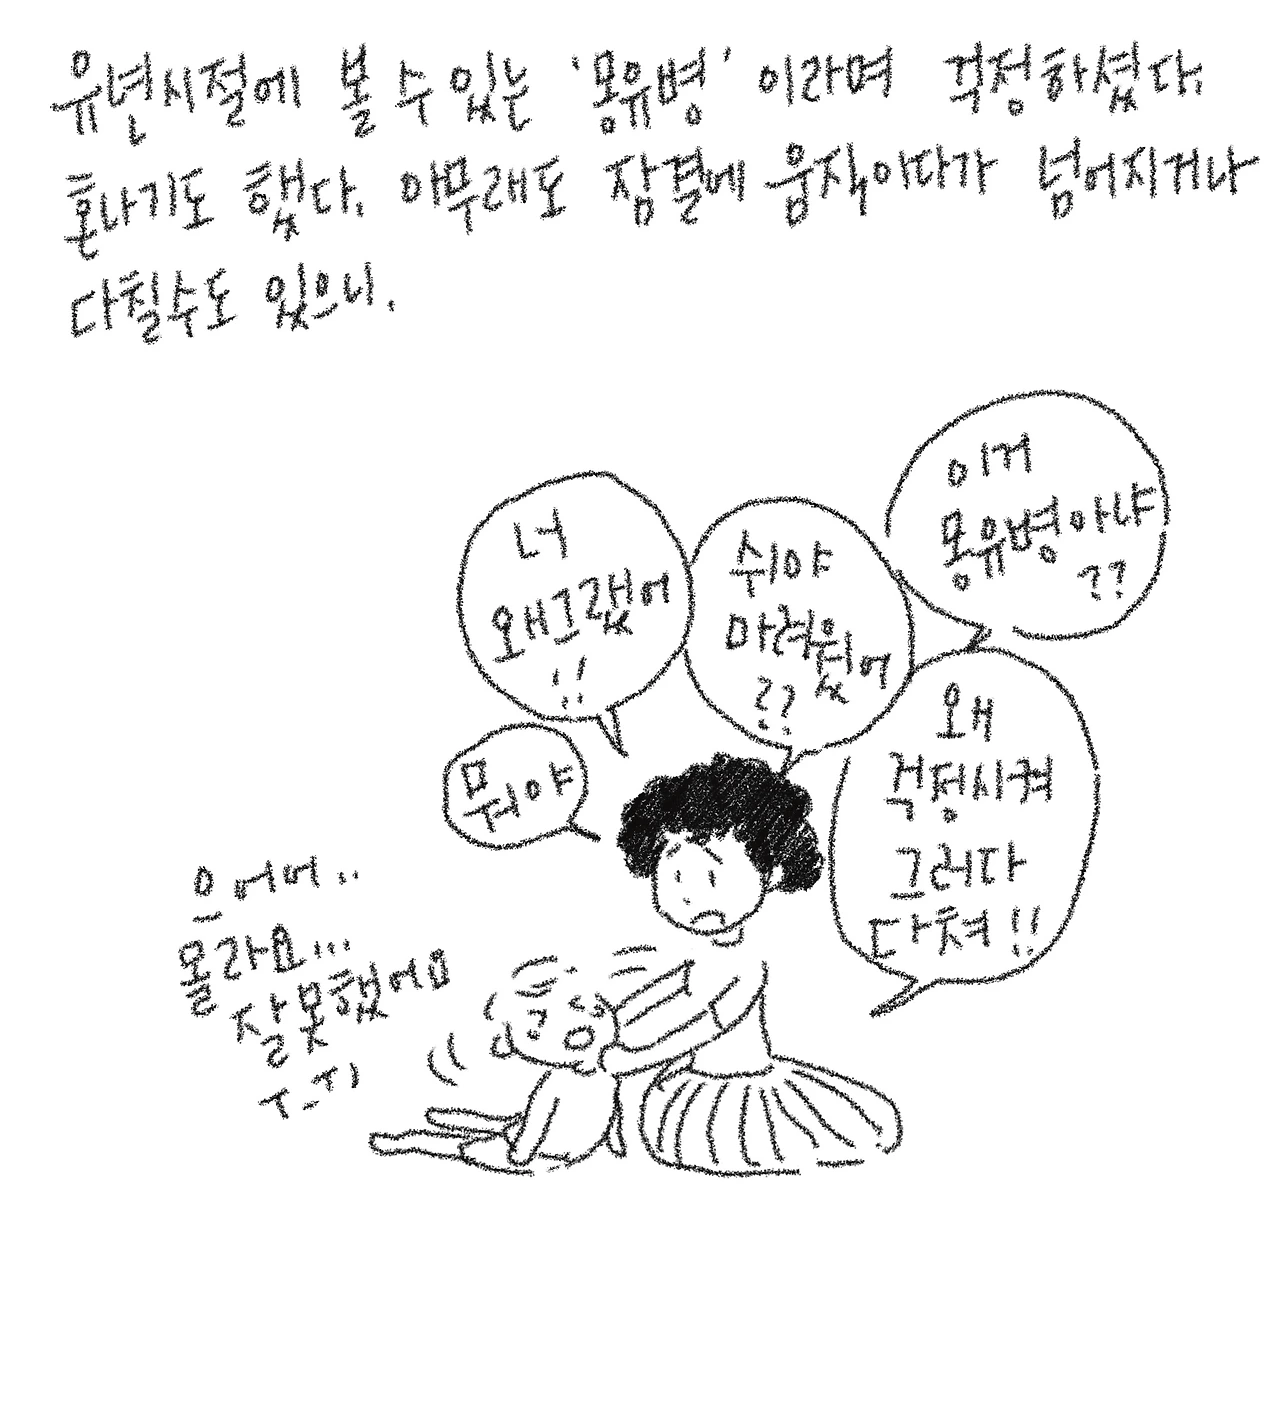 유년시절에 볼 수 있는 '몽유병' 이라며 걱정하셨다.
혼나기도 했다. 아무래도 잠결에 움직이다가 넘어지거나
다칠수도 있으니.
이거
몽유병아냐
??
너
왜그랬어
!!
쉬야
마려웠어
??
왜
걱정시켜
그러다
다쳐!!
뭐야
으어어..
몰라요...
잘못했어요
ㅜ_ㅜ)